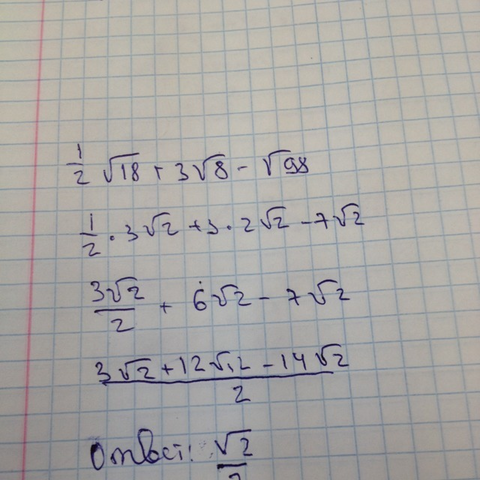 1/2 √18 + 3√8 - √98
1/2 · 3√2 + 3 · 2√2 - 7√2
3√2/2 + 6√2 - 7√2
3√2 + 12√2 - 14√2 / 2
Ответ: √2/2